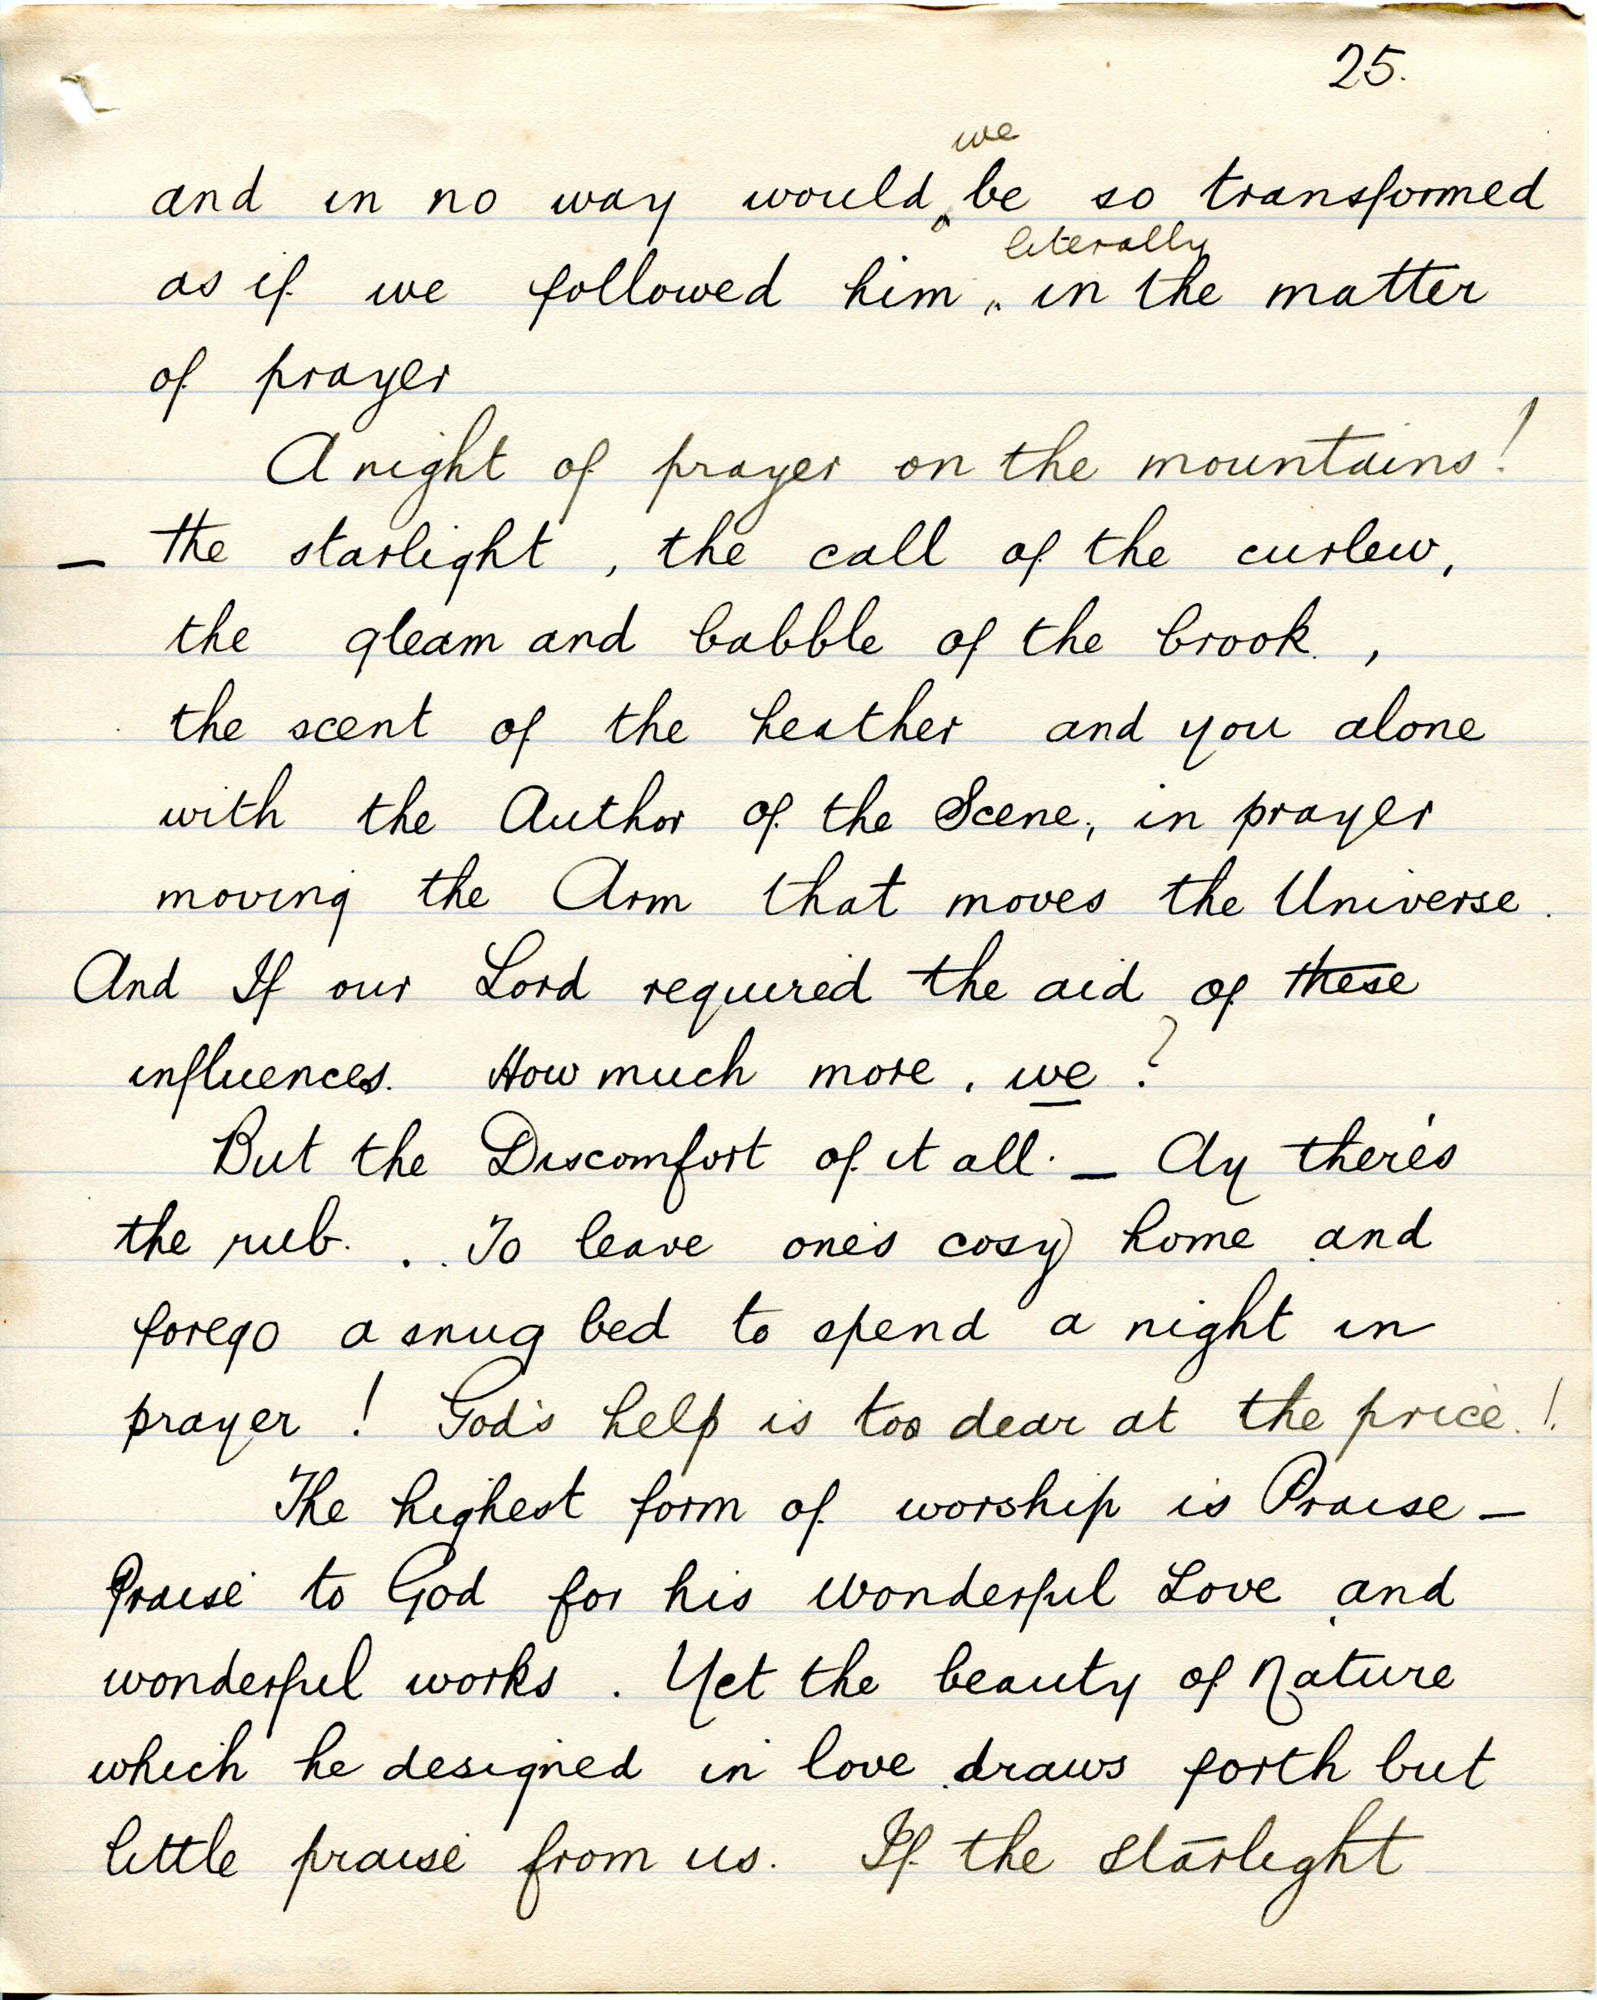 25.
we
and in no way would be so transformed
literally
as if we followed him in the matter
of prayer
A night of prayer on the mountains!
— the starlight, the call of the curlew,
the gleam and babble of the brook,
the scent of the heather and you alone
with the Author of the Scene, in prayer
moving the Arm that moves the Universe.
And If our Lord required the aid of these
influences. How much more, we?
But the Discomfort of it all. — Ay there's
the rub. . . To leave one's cosy home and
forego a snug bed to spend a night in
prayer! God's help is too dear at the price!
The highest form of worship is Praise —
Praise to God for his wonderful Love and
wonderful works. Yet the beauty of Nature
which he designed in love draws forth but
little praise from us. If the starlight